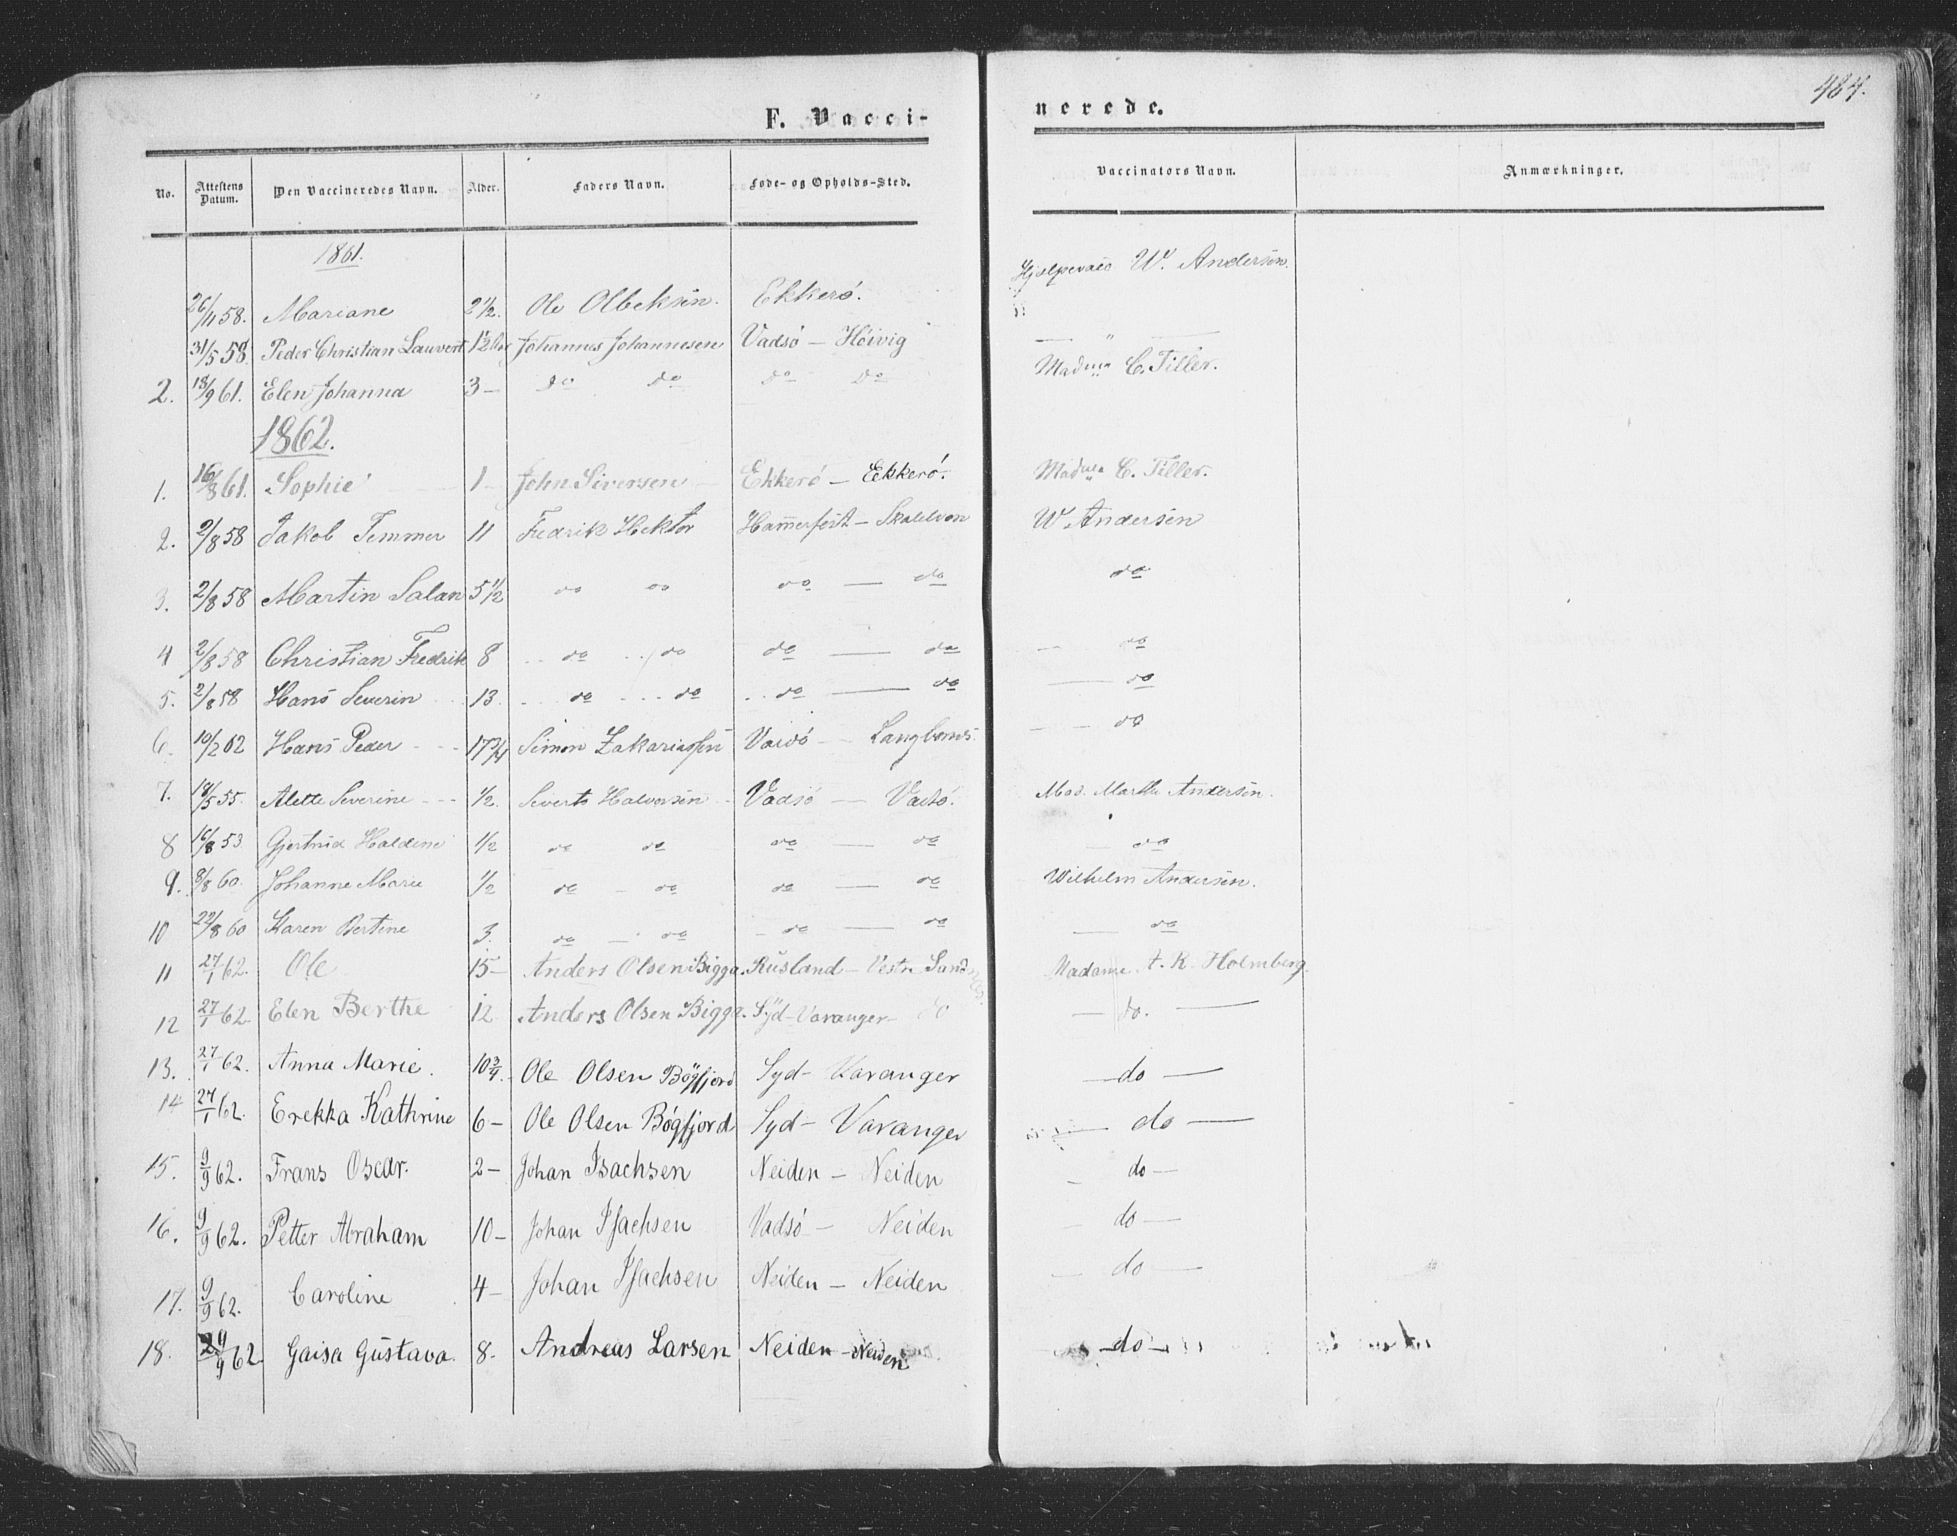 484.
F. Vaccinerede.
No. Attestens Datum. Den Vaccineredes Navn. Alder. Faders Navn. Føde- og Opholds-Sted. Vaccinators Navn. Anmærkninger.
1861.
26/11 58. Mariane 2 1/2. Ole Olbeksen. Ekkerö. Hjelpevacc W. Andersen.
31/5 58. Peder Christian Lauverts 1 1/2 Johannes Johannesen Vadsö — Höivig — " —
2. 18/9 61. Elen Johanna 3 — do do do do Madme C. Tiller.
1862.
1. 16/8 61. Sophie 1 — John Siversen — Ekkerö — Ekkerö. Madme C. Tiller.
2. 2/8 58 Jakob Temmer 11 Fredrik Hektor Hamerfest — Skalelven W Andersen
3. 2/8 58 Martin Salan 5 1/2 do do do — do do
4 2/8 58 Christian Fredrik 8 do do do — do — do
5. 2/8 58 Hans Severin 13. do do do — do — do
6. 10/2 62 Hans Peder 17 3/4 Simon Zakariassen Vadsö — Langbunes — do
7. 18/5 55. Alette Severine 1/2. Siverts Halvorsen Vadsö — Vadsö. Mad. Marthe Andersen.
8 16/8 53 Gjertrud Haldine 1/2 do do do — do — do
9. 8/8 60. Johanne Marie 1/2 do — do do — do Wilhelm Andersen.
10 22/8 60 Karen Bertine 3. do — do — do — do — do
11 27/1 62. Ole 15 — Anders Olsen Bigga. Rusland — Vestre Sandnes. Madame A. K. Holmberg.
12 27/1 62. Elen Berthe 12 Anders Olsen Bigga. Syd-Varanger — do — do. —
13. 27/1 62. Anna Marie. 10 3/4. Ole Olsen Bögfjord Syd- Varanger — do —
14 27/1 62. Erekka Kathrine 6 — Ole Olsen Bøgfjord Syd- Varanger — do —
15. 9/9 62. Frans Oscar. 2 — Johan Isachsen Neiden — Neiden — do —
16. 9/9 62. Petter Abraham 10 — Johan Isachsen Vadsö — Neiden — do —
17. 9/9 62. Caroline 4 — Johan Isachsen Neiden — Neiden — do —
18. 29/9 62. Gaisa Gustava. 8. Andreas Larsen Neiden — Neiden — do —